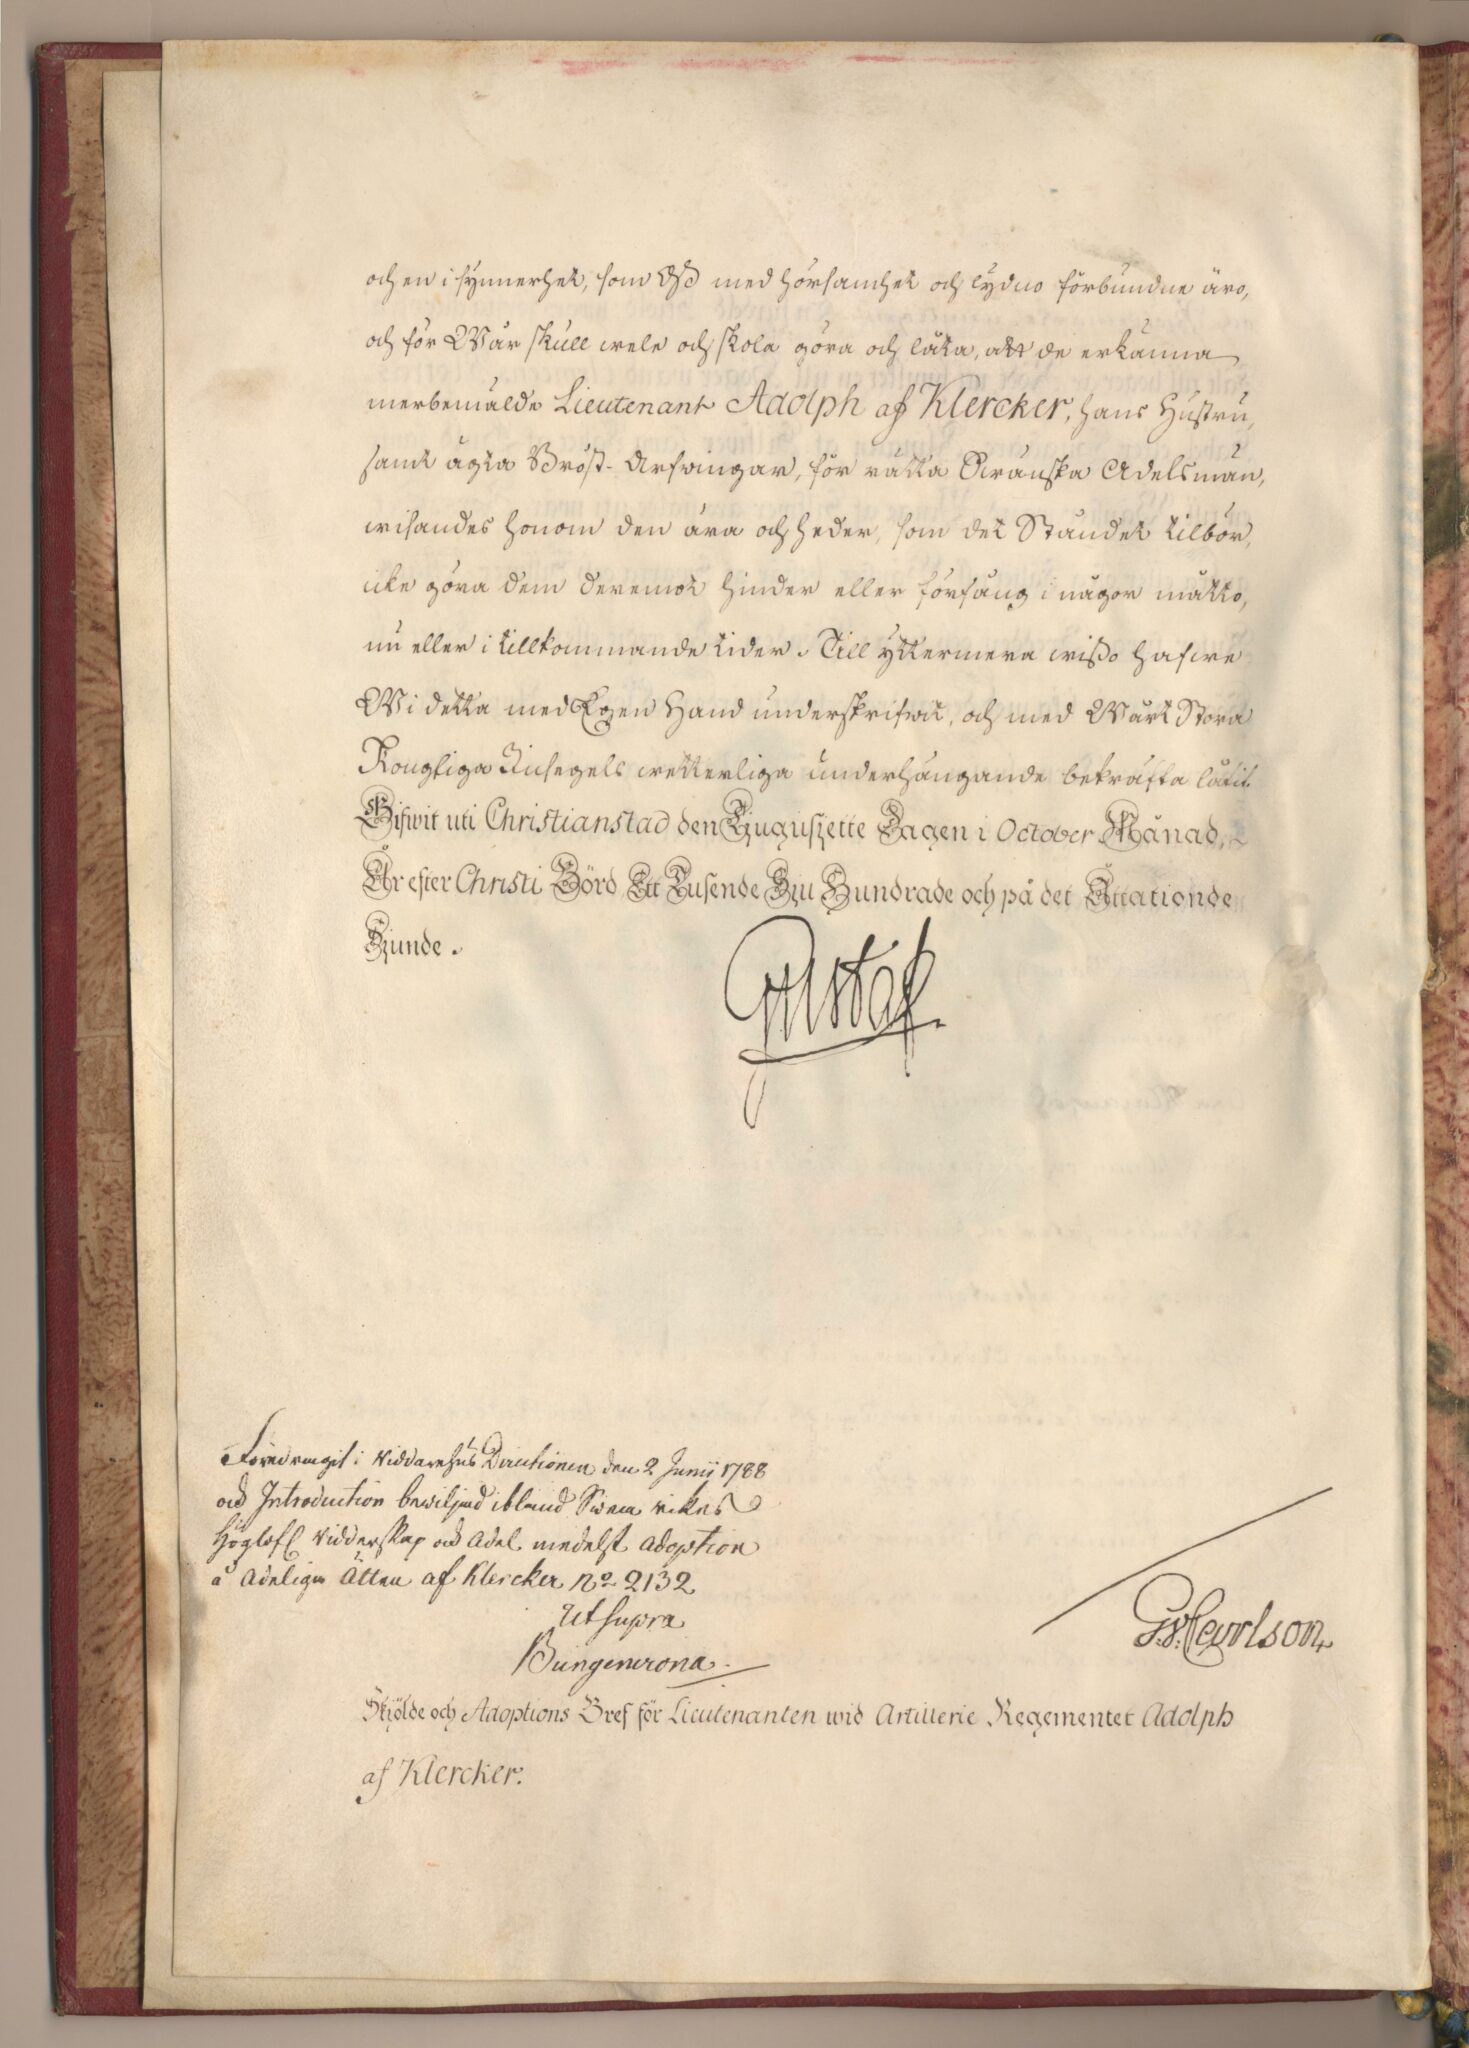 och en i synnerhet, som Oß med hörsamhet och lydno förbundne äro,
och för Wår skull wele och skola göra och låta, att de erkänna
merbemälde Lieutenant Adolph af Klercker, hans Hustru,
samt ägta Bröst-Arfwingar, för rätta Swänska Adelsmän,
wisandes honom den ära och heder, som detStåndet tilbör,
icke göra dem deremot hinder eller förfång i någor måtto,
nu eller i tillkommande tider. Till yttermera wißo hafwe
Wi detta med Egen Hand underskrifwit, och med Wårt Stora
Kongliga Insegels wetterliga underhängande bekräfta låtit.
Gifwit uti Christianstad den Tjugusjette Dagen i October Månad,
År efter Christi Börd Ett Tusende Sju Hundrade och på det Åttationde
Sjunde.
Gustaf
Föredragit i Riddarehus Directionen den 2 Junii 1788
och Introduction bewiljad ibland Swea rikes
Höglofl Ridderskap och Adel medelst adoption
å Adeliga Ätten af Klercker No 2132
Ut supra
Bungencrona
G. v. Carlson
Skjölde och Adoptions Bref för Lieutenanten wid Artillerie Regementet Adolph
af Klercker.